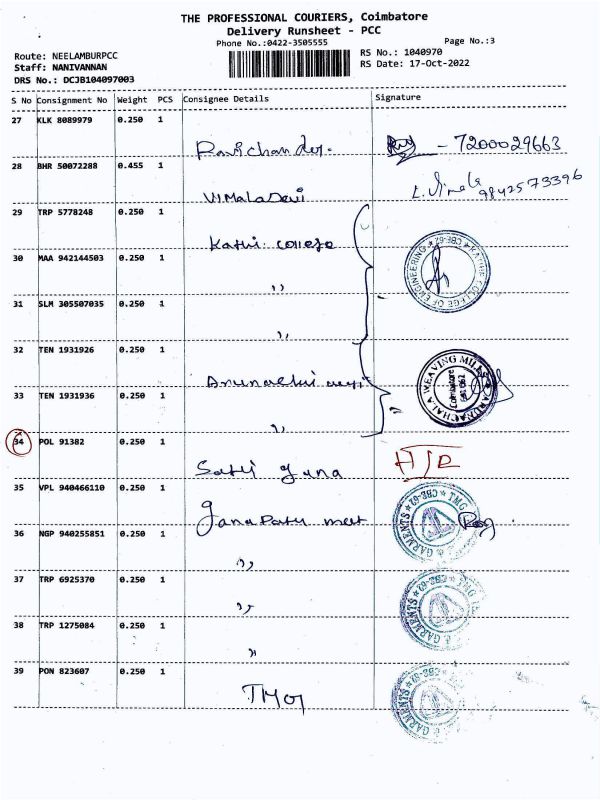 THE PROFESSIONAL COURIERS, Coimbatore
Delivery Runsheet - PCC
Phone No.:0422-3505555 Page No.:3
Route: NEELAMBURPCC RS No.: 1040970
Staff: NANIVANNAN RS Date: 17-Oct-2022
DRS No.: DCJB104097003
S No Consignment No Weight PCS Consignee Details Signature
27 KLK 8089979 0.250 1
Ravichander. - 7200029663
28 BHR 50072288 0.455 1
VimalaDevi 9842573396
29 TRP 5778248 0.250 1
Kathir college
30 MAA 942144503 0.250 1
COLLEGE OF ENGINEERING CBE-62
,,
31 SLM 305507035 0.250 1
,,
32 TEN 1931926 0.250 1
WEAVING MILL Coimbatore 641 062
33 TEN 1931936 0.250 1
,,
34 POL 91382 0.250 1
35 VPL 940466110 0.250 1
TMG & GARMENTS CBE-62
36 NGP 940255851 0.250 1
,,
37 TRP 6925370 0.250 1
TMG & GARMENTS CBE-62
,,
38 TRP 1275084 0.250 1
,,
39 PON 823607 0.250 1
TMG TMG & GARMENTS CBE-62